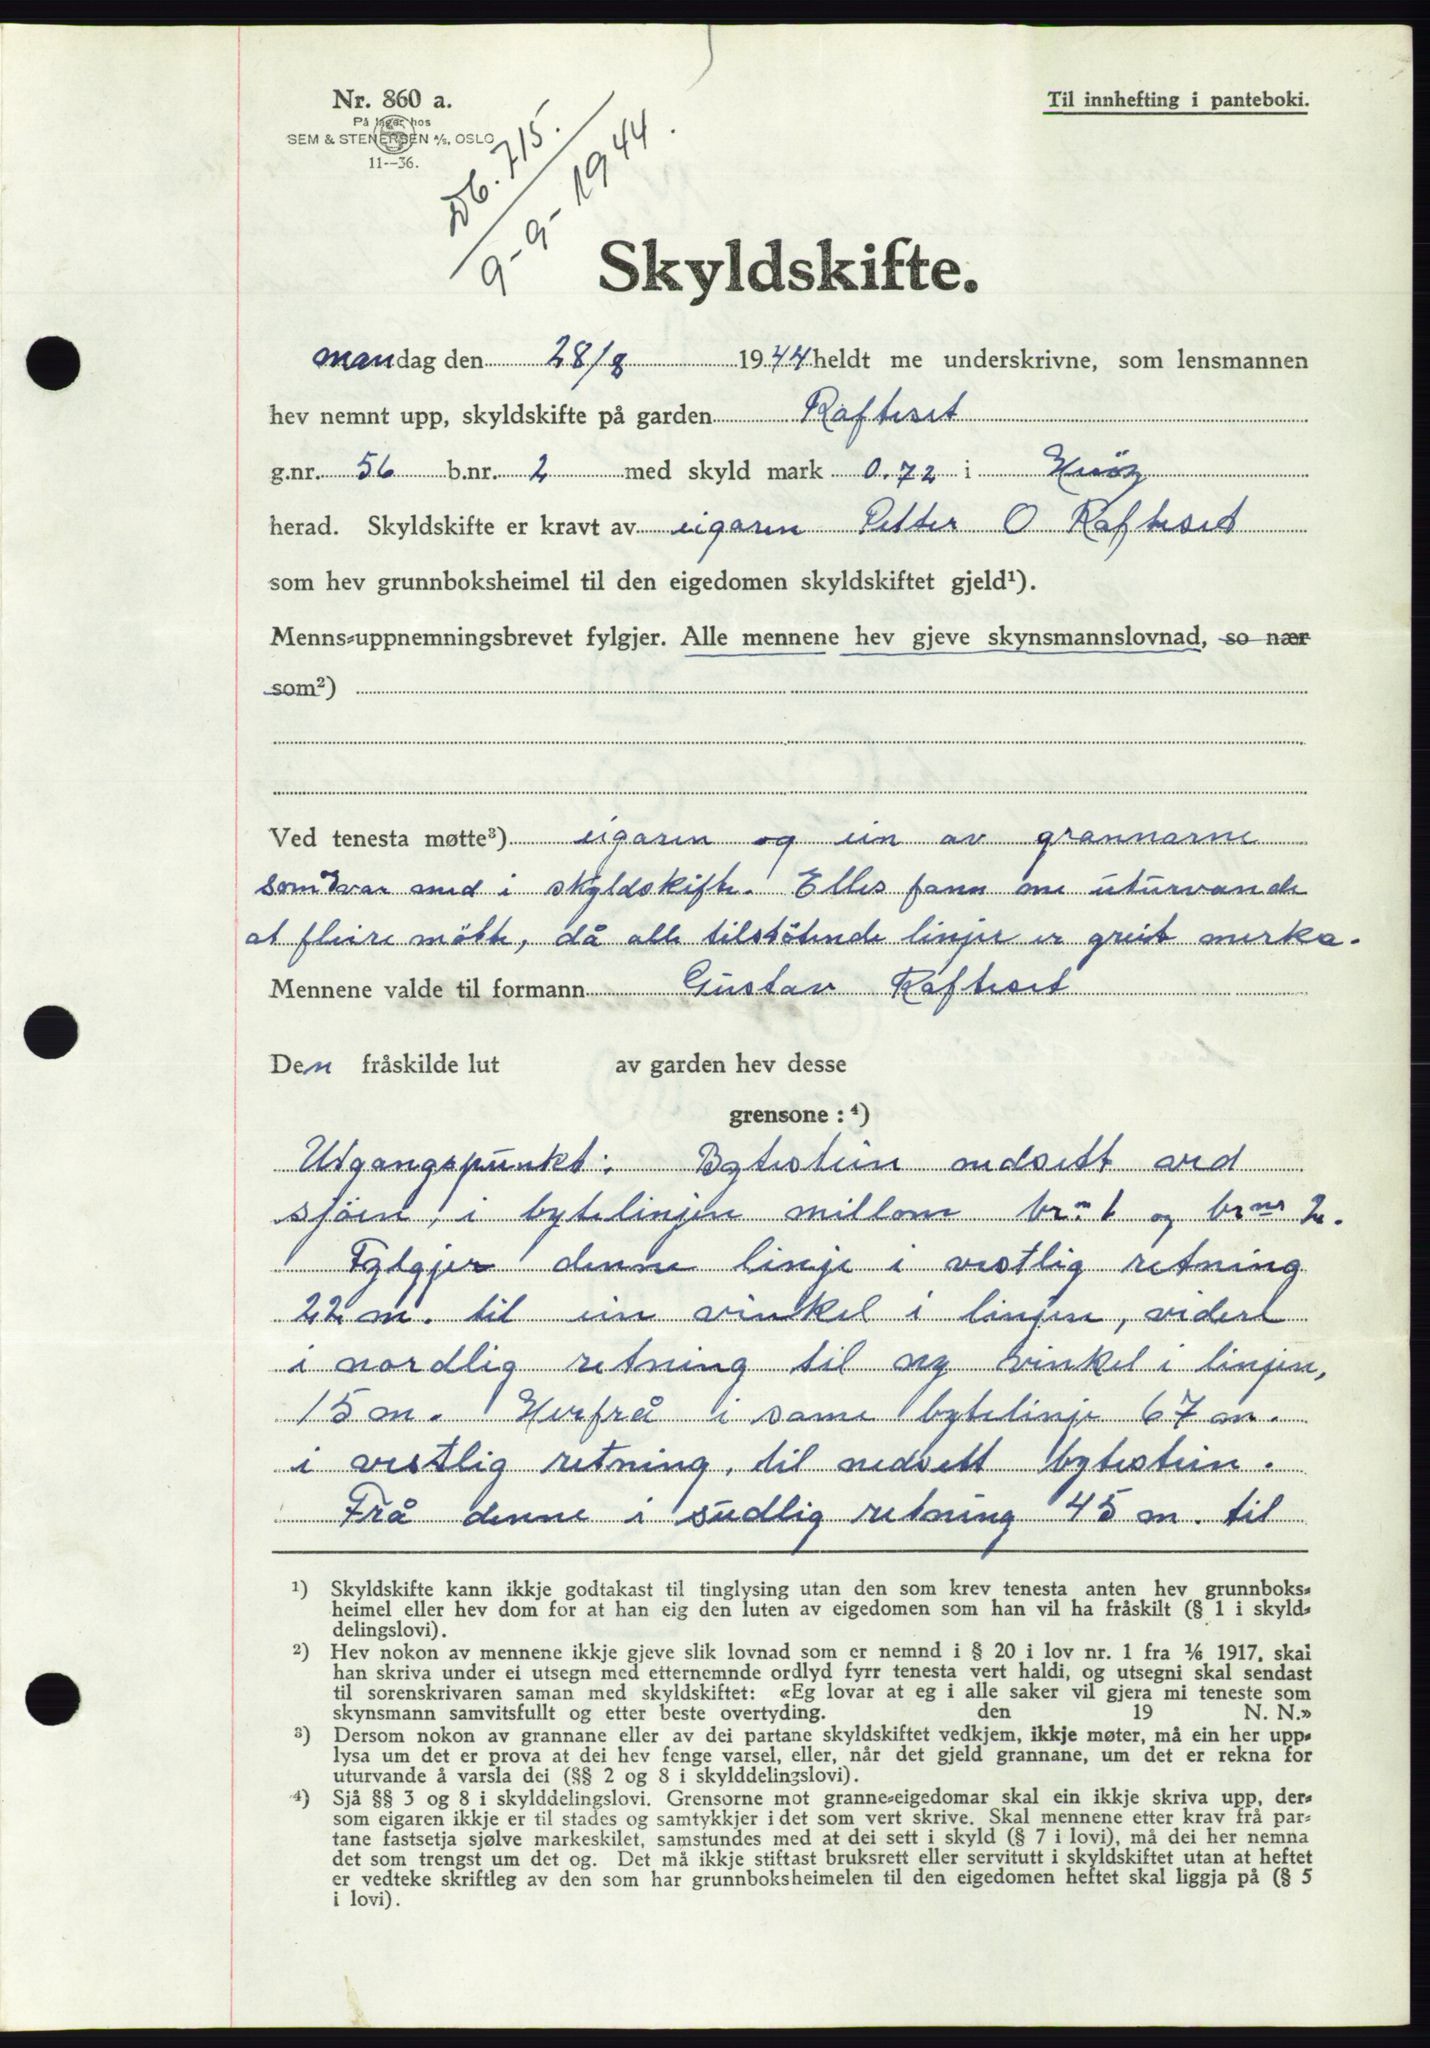 Nr. 860 a.
På lager hos
SEM & STENERSEN A/S, OSLO
11--36.
Til innhefting i panteboki.
Db. 715.
9-9-1944.
Skyldskifte.
mandag den 28/8 1944 heldt me underskrivne, som lensmannen
hev nemnt upp, skyldskifte på garden Rafteset
g.nr. 56 b.nr. 2 med skyld mark 0.72 i
herad. Skyldskifte er kravt av eigaren Petter O Rafteset
som hev grunnboksheimel til den eigedomen skyldskiftet gjeld¹).
Menns-uppnemningsbrevet fylgjer. Alle mennene hev gjeve skynsmannslovnad, so nær
som²)
Ved tenesta møtte³) eigaren og ein av grannarne
som var med i skyldskifte. Elles fann me uturvande
at fleire mötte, då alle tilstötende linjer er greit merka.
Mennene valde til formann Gustav Rafteset
Den fråskilde lut av garden hev desse
grensone :⁴)
Utgangspunkt: Bytestein nedsett ved
sjöen, i bytelinjen millom br.nr 1 og br.nr 2.
Fylgjer denne linje i vestlig retning
22 m. til ein vinkel i linjen, videre
i nordlig retning til ny vinkel i linjen,
15 m. Herfrå i same bytelinje 67 m.
i vestlig retning, til nedsett bytestein.
Frå denne i sudlig retning 45 m. til
¹) Skyldskifte kann ikkje godtakast til tinglysing utan den som krev tenesta anten hev grunnboks-
heimel eller hev dom for at han eig den luten av eigedomen som han vil ha fråskilt (§ 1 i skyld-
delingslovi).
²) Hev nokon av mennene ikkje gjeve slik lovnad som er nemnd i § 20 i lov nr. 1 fra 1/6 1917, skal
han skriva under ei utsegn med etternemnde ordlyd fyrr tenesta vert haldi, og utsegni skal sendast
til sorenskrivaren saman med skyldskiftet: «Eg lovar at eg i alle saker vil gjera mi teneste som
skynsmann samvitsfullt og etter beste overtyding. den 19 N. N.»
³) Dersom nokon av grannane eller av dei partane skyldskiftet vedkjem, ikkje møter, må ein her upp-
lysa um det er prova at dei hev fenge varsel, eller, når det gjeld grannane, um det er rekna for
uturvande å varsla dei (§§ 2 og 8 i skylddelingslovi).
⁴) Sjå §§ 3 og 8 i skylddelingslovi. Grensorne mot granne-eigedomar skal ein ikkje skriva upp, der-
som eigaren ikkje er til stades og samtykkjer i det som vert skrive. Skal mennene etter krav frå par-
tane fastsetja sjølve markeskilet, samstundes med at dei sett i skyld (§ 7 i lovi), må dei her nemna
det som trengst um det og. Det må ikkje stiftast bruksrett eller servitutt i skyldskiftet utan at heftet
er vedteke skriftleg av den som har grunnboksheimelen til den eigedomen heftet skal liggja på (§ 5
i lovi).